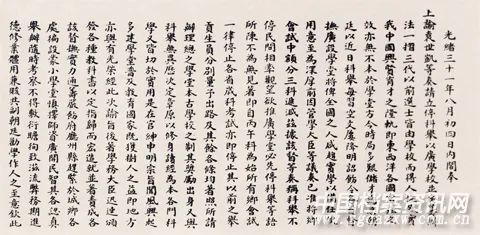 光緒三十一年八月初四日內閣奉
上諭袁世凱等奏請立停科舉以廣學校並妥籌辦
法一摺三代以前選士皆由學校而得人極盛實
我中國興賢育才之隆軌即東西洋各國富強之
效亦無不本於學堂方今時局多艱儲才為急朝
廷以近日科舉每習空文屢降明詔飭令各督
撫廣設學堂將俾全國之人咸趨實學以備任使
用意至為深厚前因管學大臣等議奏已准將鄉
會試中額分三科遞減茲據該督等奏稱科舉不
停民間相率觀望欲推廣學堂必先停科舉等語
所陳不為無見著即自丙午科為始所有鄉會試
一律停止各省歲科考試亦即停止其以前之舉
貢生員分別量予出路及其餘各條均著照所請
辦理總之學堂本古學校之制其獎勵出身又與
科舉無異歷次定章原以修身讀經為本各門科
學又皆切於實用是在官紳申明宗旨聞風興起
多建學堂普及教育國家既獲樹人之益即地方
亦與有光榮經此次諭旨後著學務大臣迅速頒
發各種教科書以定指歸而宏造就並著責成各
該督撫實力通籌嚴飭府廳州縣趕緊於城鄉各
處徧設蒙小學堂慎擇師資廣開民智其各認真
舉辦隨時考察不得敷衍瞻徇致滋流弊務期進
德修業體用兼賅共副朝廷勸學作人之至意欽此